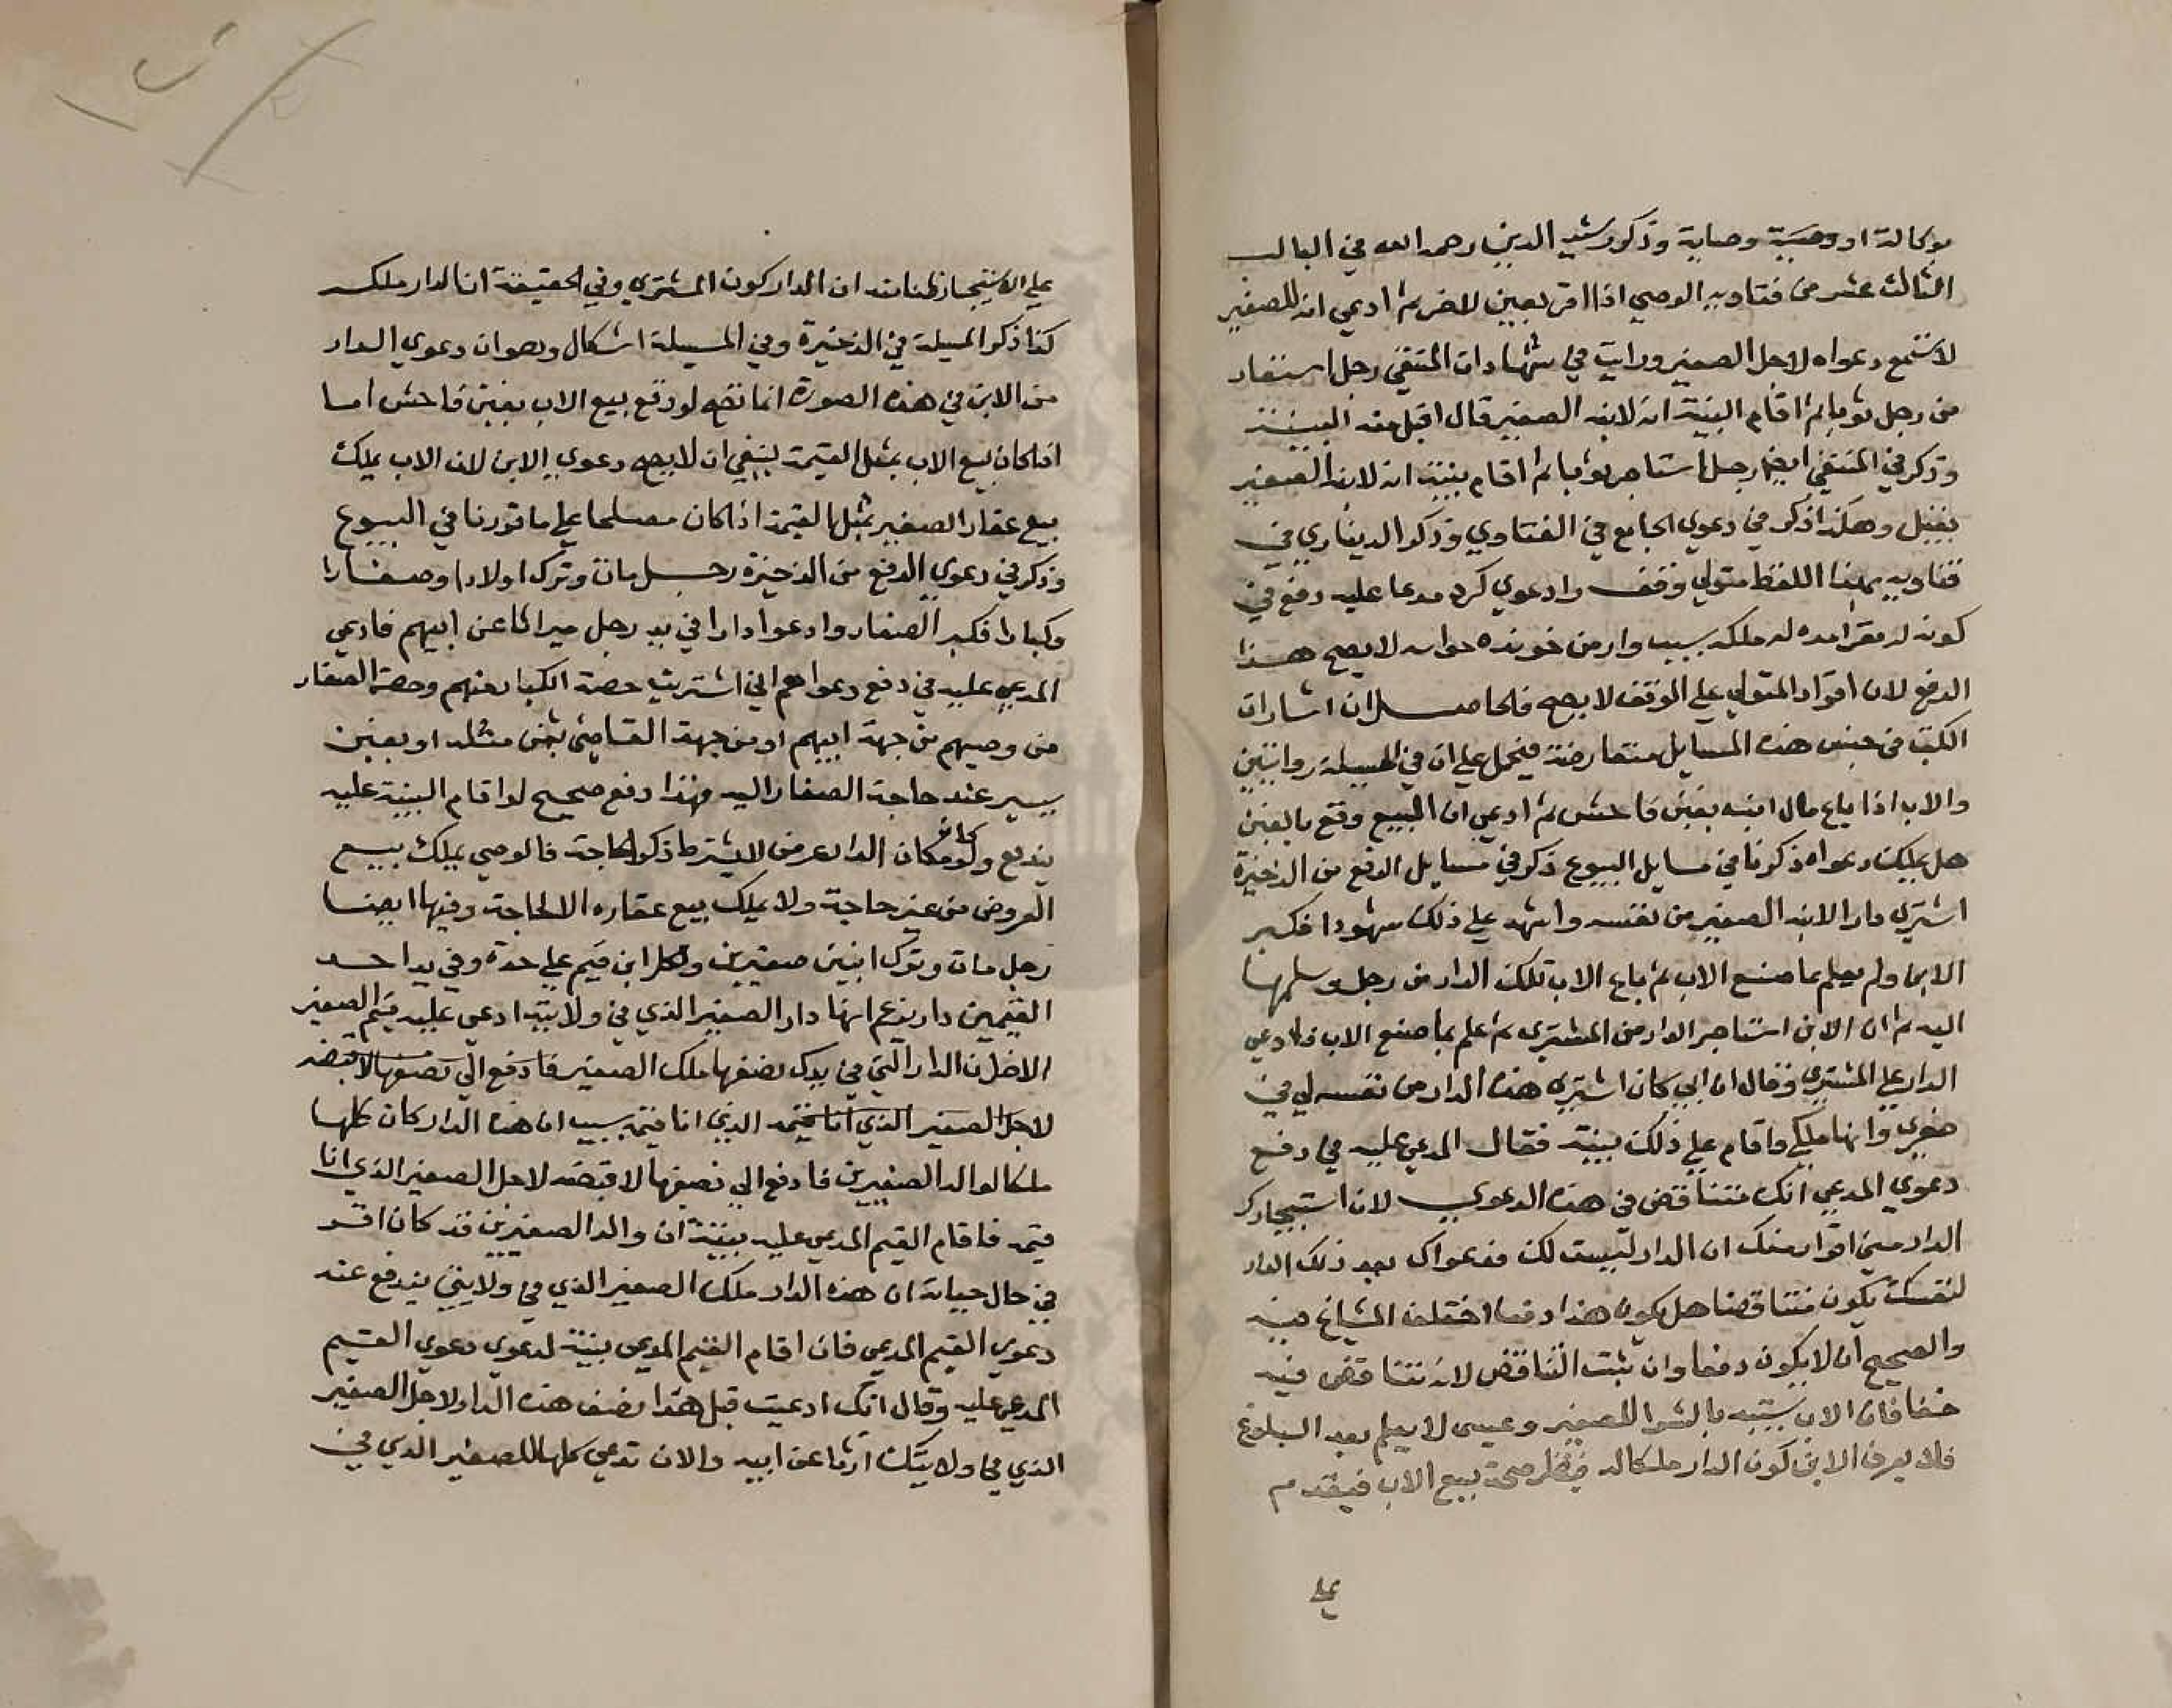 بوكالة او وصية وصاية وذكر رشيد الدين رحمه الله في الباب
الثالث عشر من فتاويه الوصي اذا اقر بعين للغير ثم ادعي انه للصغير
لا تسمع دعواه لاجل الصغير ورايت في شهادات المنتقي رجل استعار
من رجل ثوبا ثم اقام البينة انه لابنه الصغير قال اقبل منه البينة
وذكر في المنتقي ايضا رجل استاجر ثوبا ثم اقام بينة انه لابنه الصغير
يقبل وهكذا ذكر في دعوي الجامع في الفتاوي وذكر الديناري في
فتاويه بهذا اللفظ متولي وقف را دعوي كرد مدعا عليه دفع في
كونه له مقر امده له ملكه سبب وار من خونده جواب لا يصح هذا
الدفع لان اقرار المتولي علي الوقف لا يصح فالحاصل ان اشارات
الكتب في جنس هذه المسايل متعارضة فيحمل علي ان في المسيلة روايتين
والاب اذا باع مال ابنه بغبن فاحش ثم ادعي ان المبيع وقع بالغبن
هل يملك دعواه ذكرنا في مسايل البيوع ذكر في مسايل الدفع من الذخيرة
اشتري دارا لابنه الصغير من نفسه واشهد علي ذلك شهودا فكبر
الابن ولم يعلم بما صنع الاب ثم باع الاب تلك الدار من رجل وسلمها
اليه ثم ان الابن استاجر الدار من المشتري ثم علم بما صنع الاب فادعي
الدار علي المشتري وقال ان ابي كان اشتري هذه الدار من نفسه لي في
صغري وانها ملكي واقام علي ذلك بينة فقال المدعي عليه في دفع
دعوي المدعي انك متناقض في هذه الدعوي لان استيجارك
الدار مني اقرار منك ان الدار ليست لك فدعواك بعد ذلك الدار
لنفسك يكون متناقضا هل يكون هذا دفعا اختلف المشايخ فيه
والصحيح ان لا يكون دفعا وان ثبت التناقض لانه تناقض فيه
خفا فان الاب يستبد بالشرا للصغير وعسى لا يعلم بعد البلوغ
فلا يعرف الابن كون الدار ملكا له فيظهر صحة بيع الاب فيقدم
علي
علي الاستيجار ظنا منه ان الدار كون المشتري وفي الحقيقة ان الدار ملكه
كذا ذكر المسيلة في الذخيرة وفي المسيلة اشكال وهو ان دعوي الدار
من الابن في هذه الصورة انما تصح لو وقع بيع الاب بغبن فاحش اما
اذا كان بيع الاب بمثل القيمة ينبغي ان لا يصح دعوي الابن لان الاب يملك
بيع عقار الصغير بمثل القيمة اذا كان مصلحا علي ما قررنا في البيوع
وذكر في دعوي الدفع من الذخيرة رجل مات وترك اولادا وصغارا
وكبارا فكبر الصغار وادعوا دارا في يد رجل ميراثا عن ابيهم فادعي
المدعي عليه في دفع دعواهم اني اشتريت حصة الكبار منهم وحصة الصغار
من وصيهم من جهة ابيهم او من جهة القاضي بثمن مثله او بغبن
يسير عند حاجة الصغار اليه فهذا دفع صحيح لو اقام البينة عليه
يندفع ولو كان مكان الدار عرض لا يشترط ذكر الحاجة فالوصي يملك بيع
العروض من غير حاجة ولا يملك بيع عقاره الا لحاجة وفيها ايضا
رجل مات وترك ابنين صغيرين ولكل ابن قيم علي حدة وفي يد احد
القيمين دار يزعم انها دار الصغير الذي في ولايته ادعي عليه قيم الصغير
الاخر ان الدار التي في يدك نصفها ملك الصغير فادفع الي نصفها لاقبضه
لاجل الصغير الذي انا قيمه الذي انا قيمه بسبب ان هذه الدار كان كلها
ملكا لوالد الصغيرين فادفع الي نصفها لاقبضه لاجل الصغير الذي انا
قيمه فاقام القيم المدعي عليه بينة ان والد الصغيرين قد كان اقر
في حال حياته ان هذه الدار ملك الصغير الذي في ولايتي يندفع عنه
دعوي القيم المدعي فان اقام القيم المدعي بينة لدعوي دعوي القيم
المدعي عليه وقال انك ادعيت قبل هذا نصف هذه الدار لاجل الصغير
الذي في ولايتك ارثا عن ابيه والان تدعي كلها للصغير الذي في